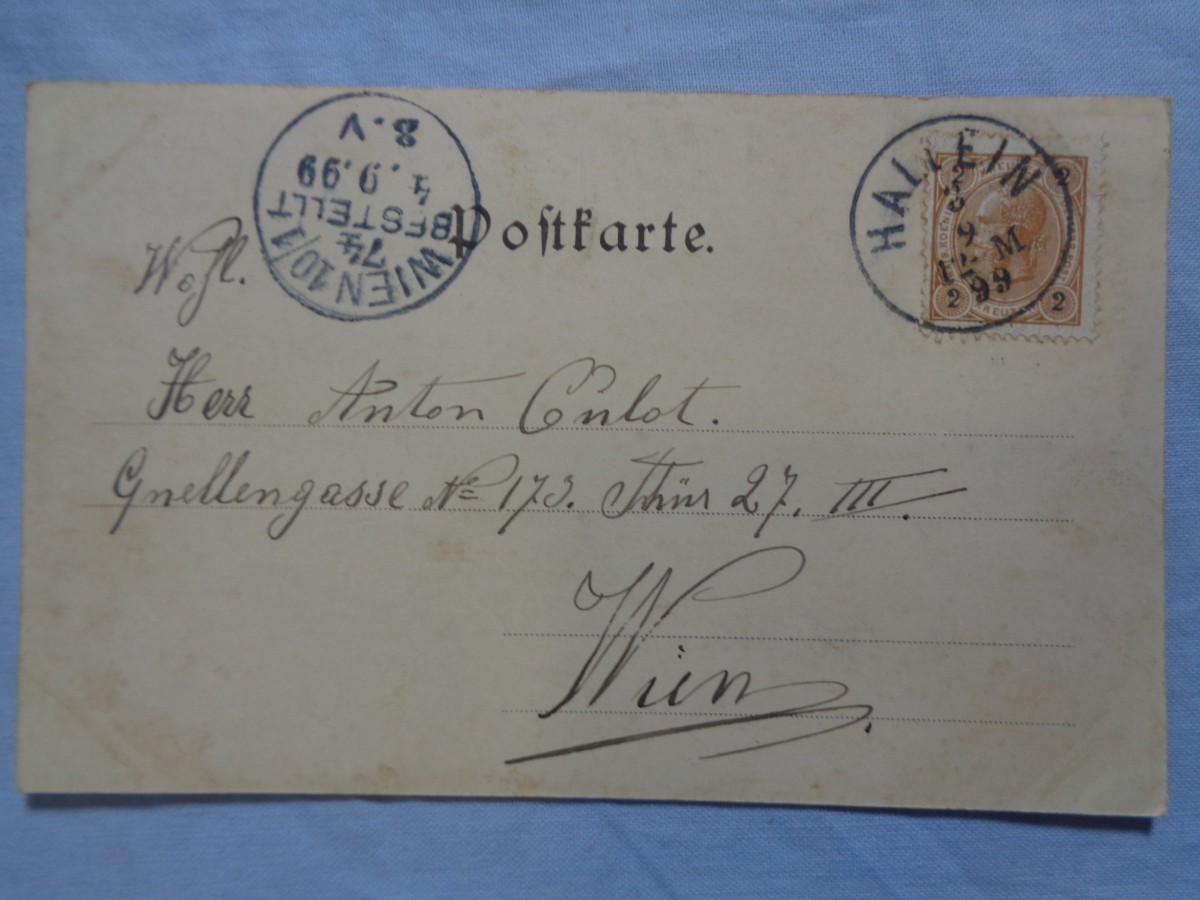 WIEN 10/1
74
BESTELLT
4.9.99
8.V
Postkarte.
HALLEIN
3
9
12.M
99
2 2
2 KREUZER 2
Wohl.
Herr Anton Culot.
Quellengasse No 173. Thür 27. III.
Wien.